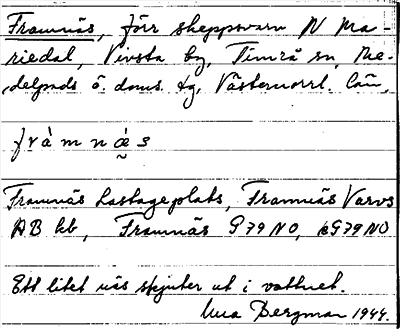 Framnäs, förr skeppsvarv N Ma-
riedal, Vivsta by, Timrå sn, Me-
delpads ö. doms. tg, Västernorrl. län.
fràmnǽs
Framnäs Lastageplats, Framnäs Varvs
AB kb, Framnäs G79NO, kG79NO
Ett litet näs skjuter ut i vattnet.
Una Bergman 1944.